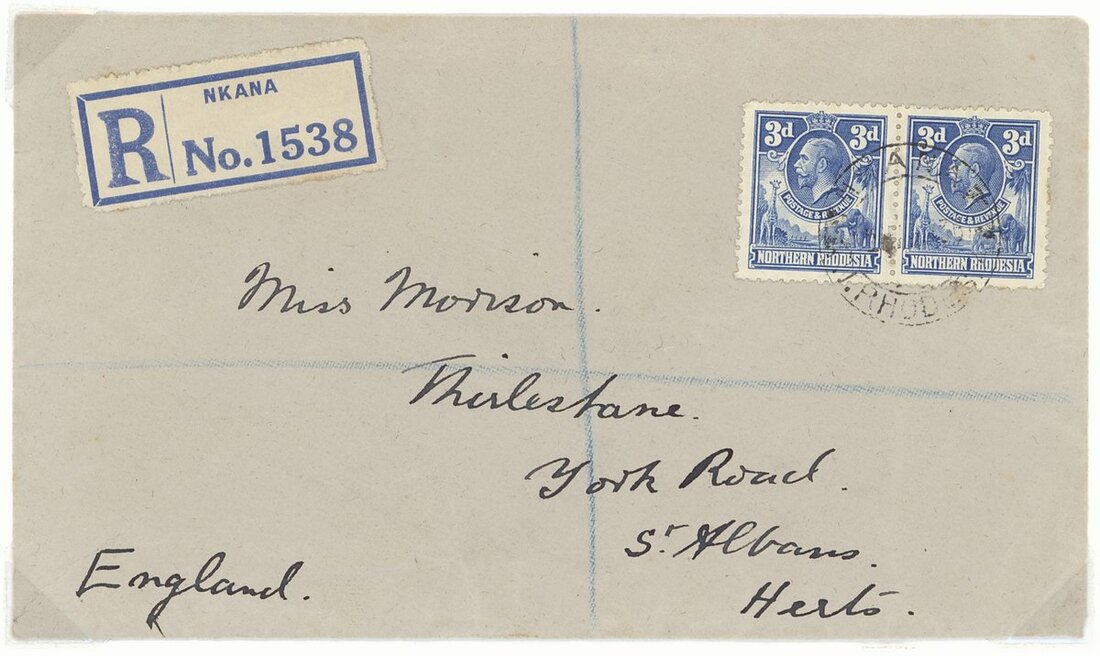 NKANA
R No. 1538
3d 3d
POSTAGE & REVENUE
NORTHERN RHODESIA
3d 3d
POSTAGE & REVENUE
NORTHERN RHODESIA
NKANA
Miss Morison.
Thirlestane.
York Road.
St Albans.
Herts.
England.